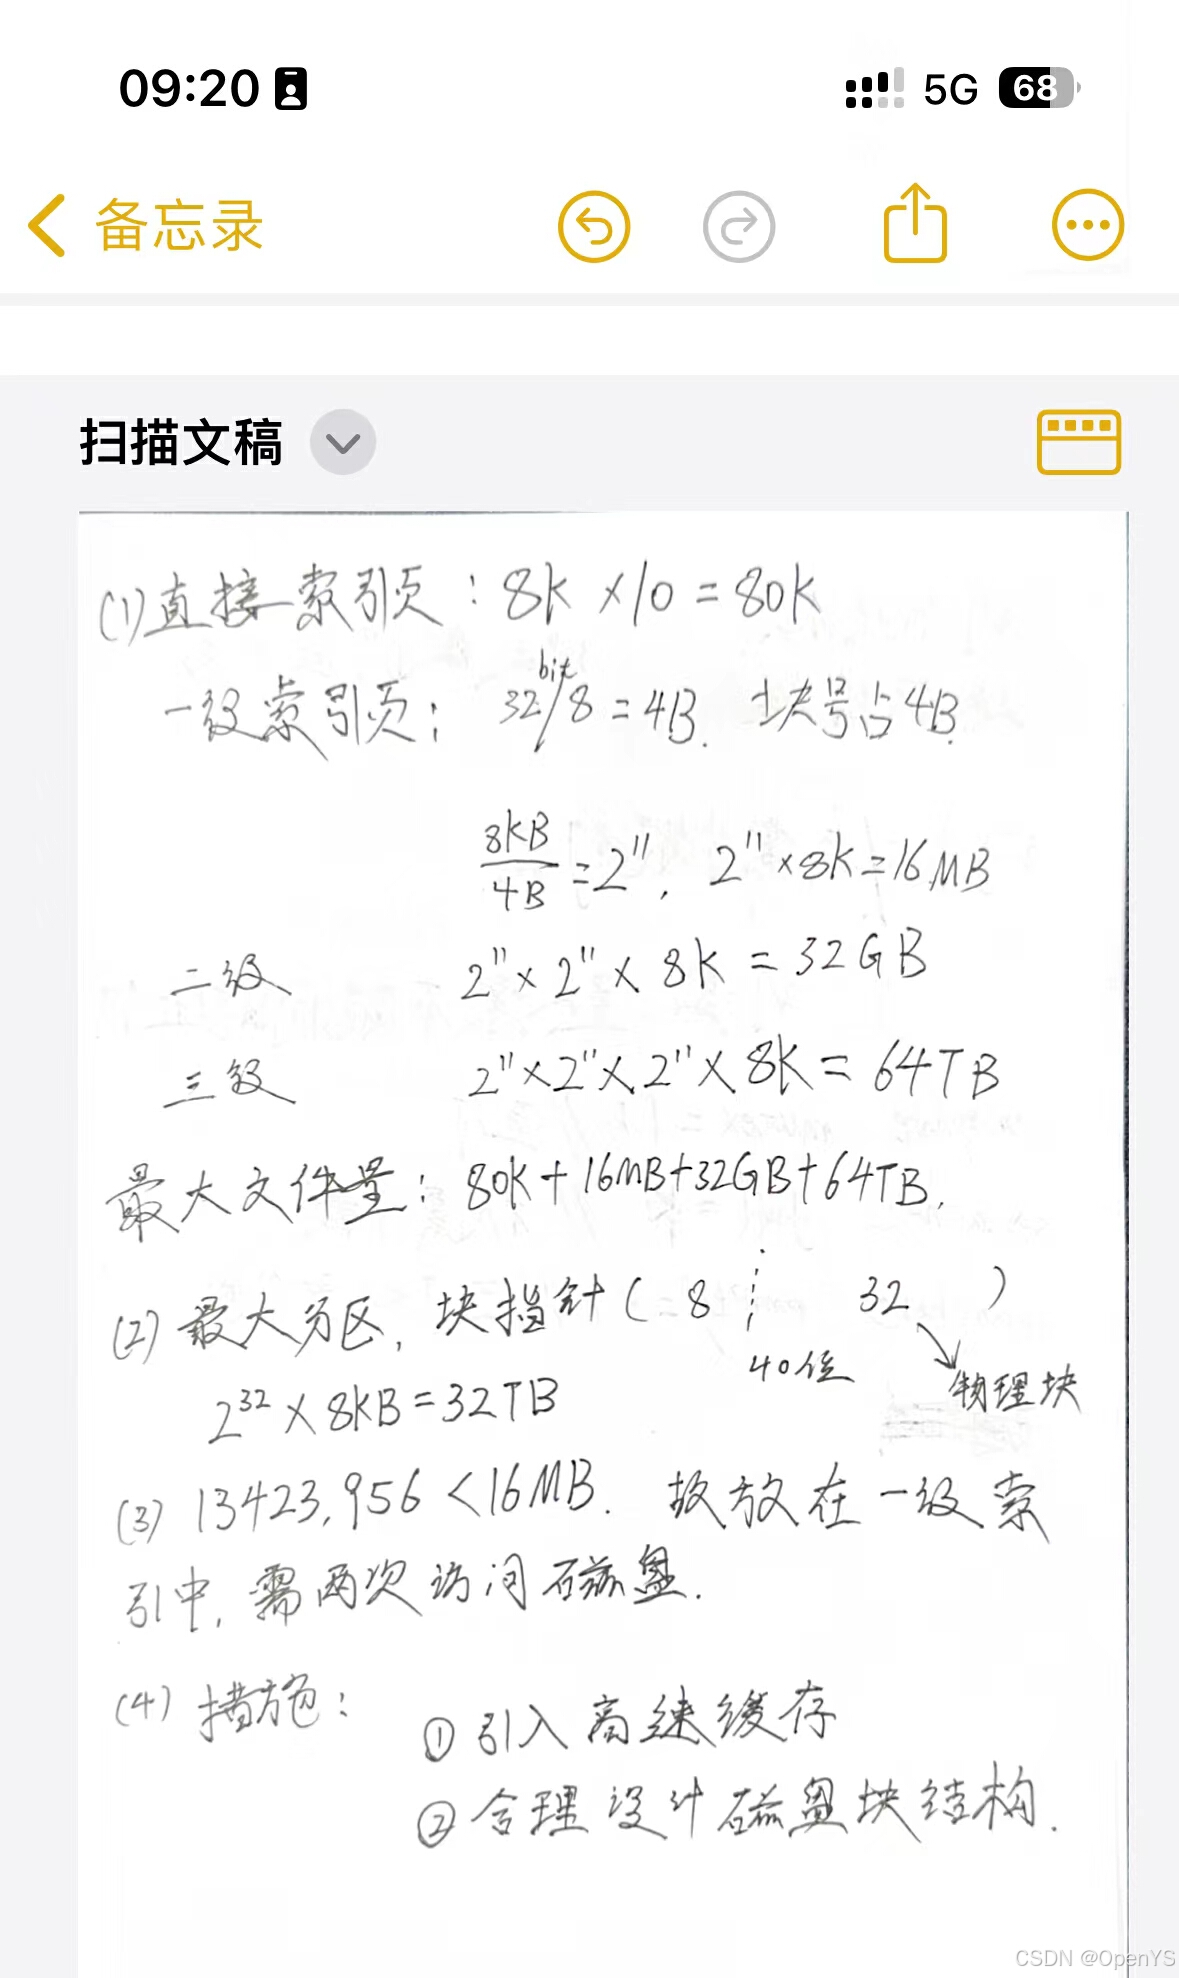 09:20
5G 68
备忘录
扫描文稿
(1)直接索引页：8K×10=80K
一级索引页：32bit/8=4B. 块号占4B.
8KB/4B=2^11, 2^11×8K=16MB
二级 2^11×2^11×8K=32GB
三级 2^11×2^11×2^11×8K=64TB
最大文件量：80K+16MB+32GB+64TB.
(2)最大分区, 块指针( 8 32 )
40位 物理块
2^32×8KB=32TB
(3) 13423,956<16MB. 故放在一级索
引中, 需两次访问磁盘.
(4) 措施：
①引入高速缓存
②合理设计磁盘块结构.
CSDN @OpenYS